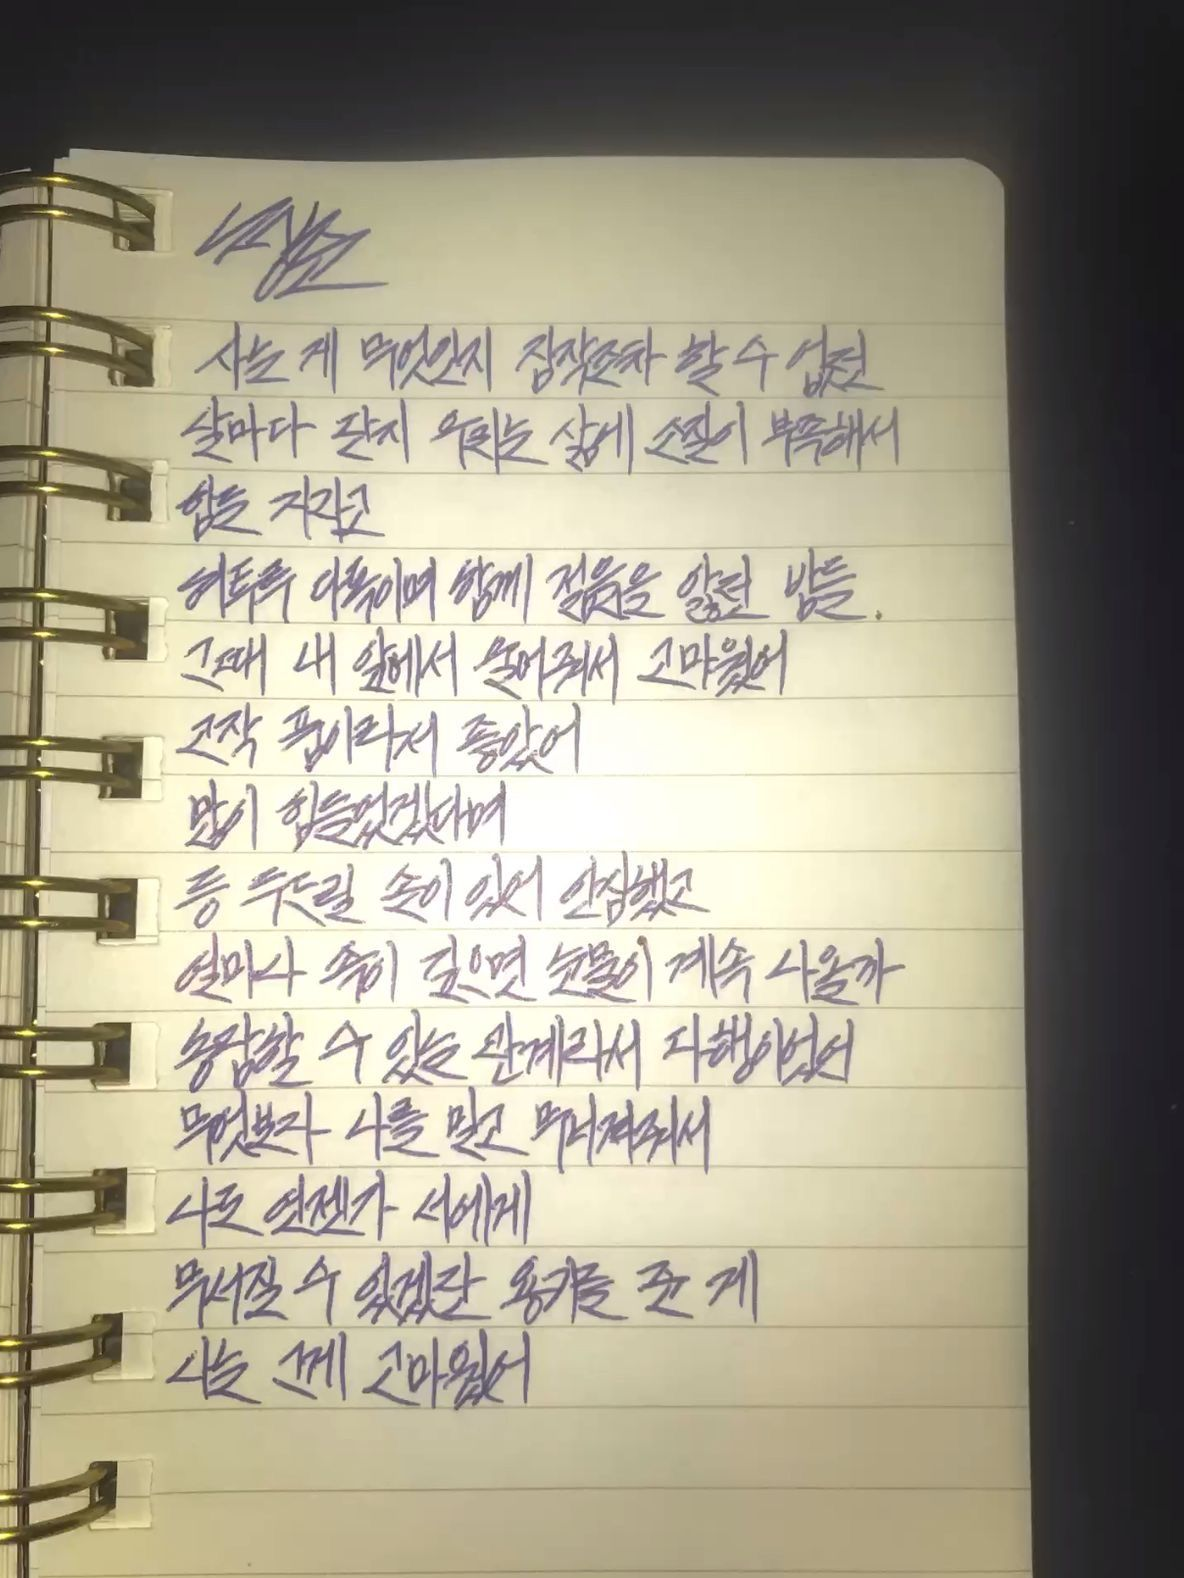 사는 게 무엇인지 짐작조차 할 수 없던
날마다 단지 우리는 삶에 소질이 부족해서
힘든 거라고
서투루 다독이며 함께 젊음을 앓던 밤들.
그때 내 앞에서 울어줘서 고마웠어
고작 품이라서 좋았어
많이 힘들었겠다며
등 두드릴 손이 있어 안심했고
얼마나 속이 깊으면 눈물이 계속 나올까
농담할 수 있는 관계라서 다행이었어
무엇보다 나를 믿고 무너져줘서
나도 언젠가 너에게
무너질 수 있겠단 용기를 준 게
나는 그게 고마웠어